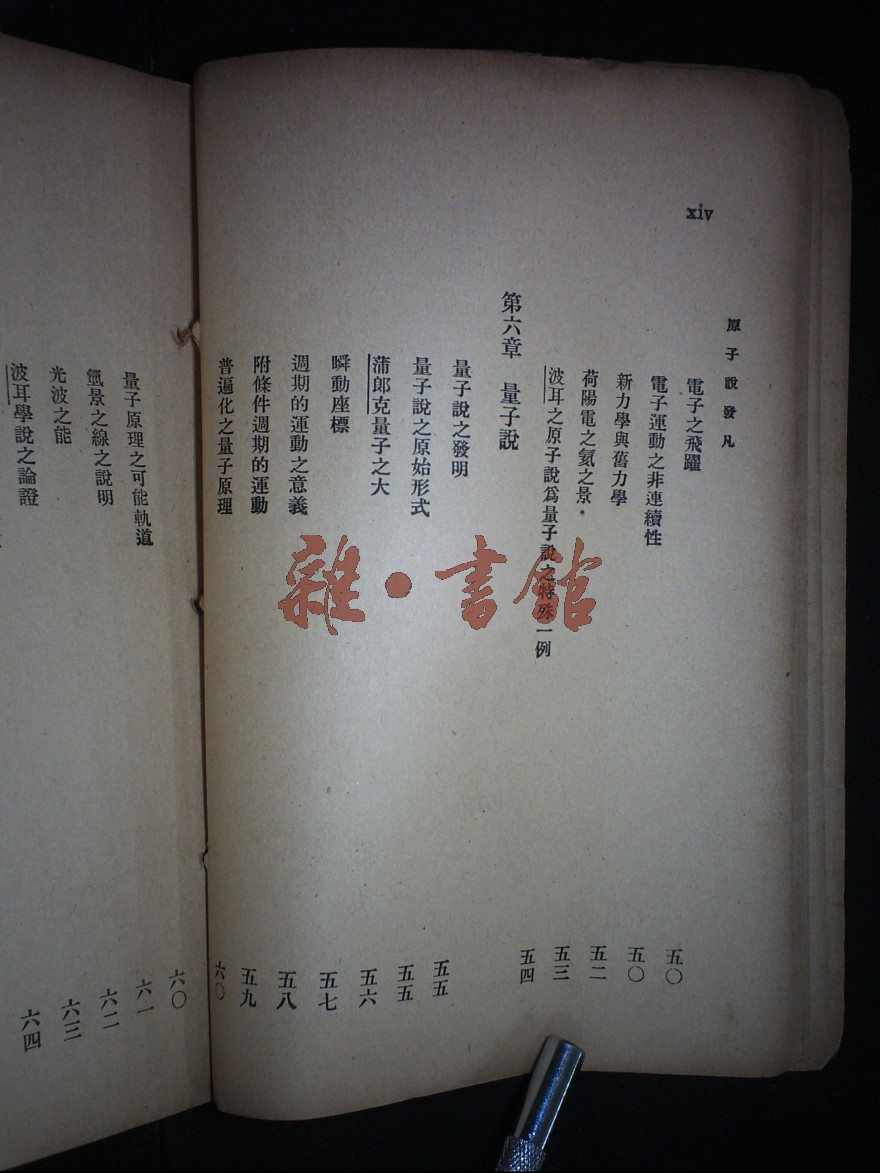 xiv
原子說發凡
電子之飛躍 五〇
電子運動之非連續性 五〇
新力學與舊力學 五二
荷陽電之氦之景 五三
波耳之原子說爲量子說之特殊一例 五四
第六章 量子說
量子說之發明 五五
量子說之原始形式 五五
蒲郎克量子之大 五六
瞬動座標 五七
週期的運動之意義 五八
附條件週期的運動 五九
普遍化之量子原理 六〇
量子原理之可能軌道 六〇
氫景之線之說明 六一
光波之能 六二
波耳學說之論證 六三
六四
雜·書館